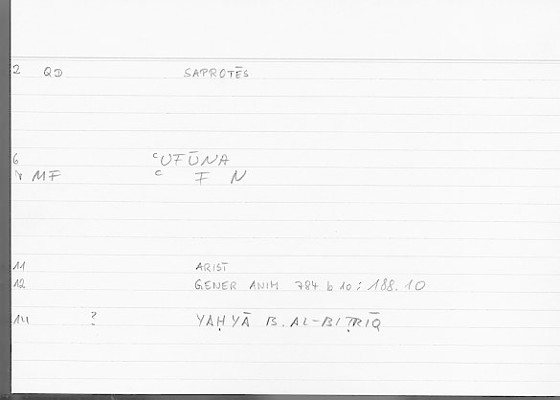 2 QD SAPROTĒS
6 ʿUFŪNA
MF ʿ F N
11 ARIST
12 GENER ANIM 784 b 10 : 188.10
14 ? YAḤYĀ B. AL-BIṬRĪQ